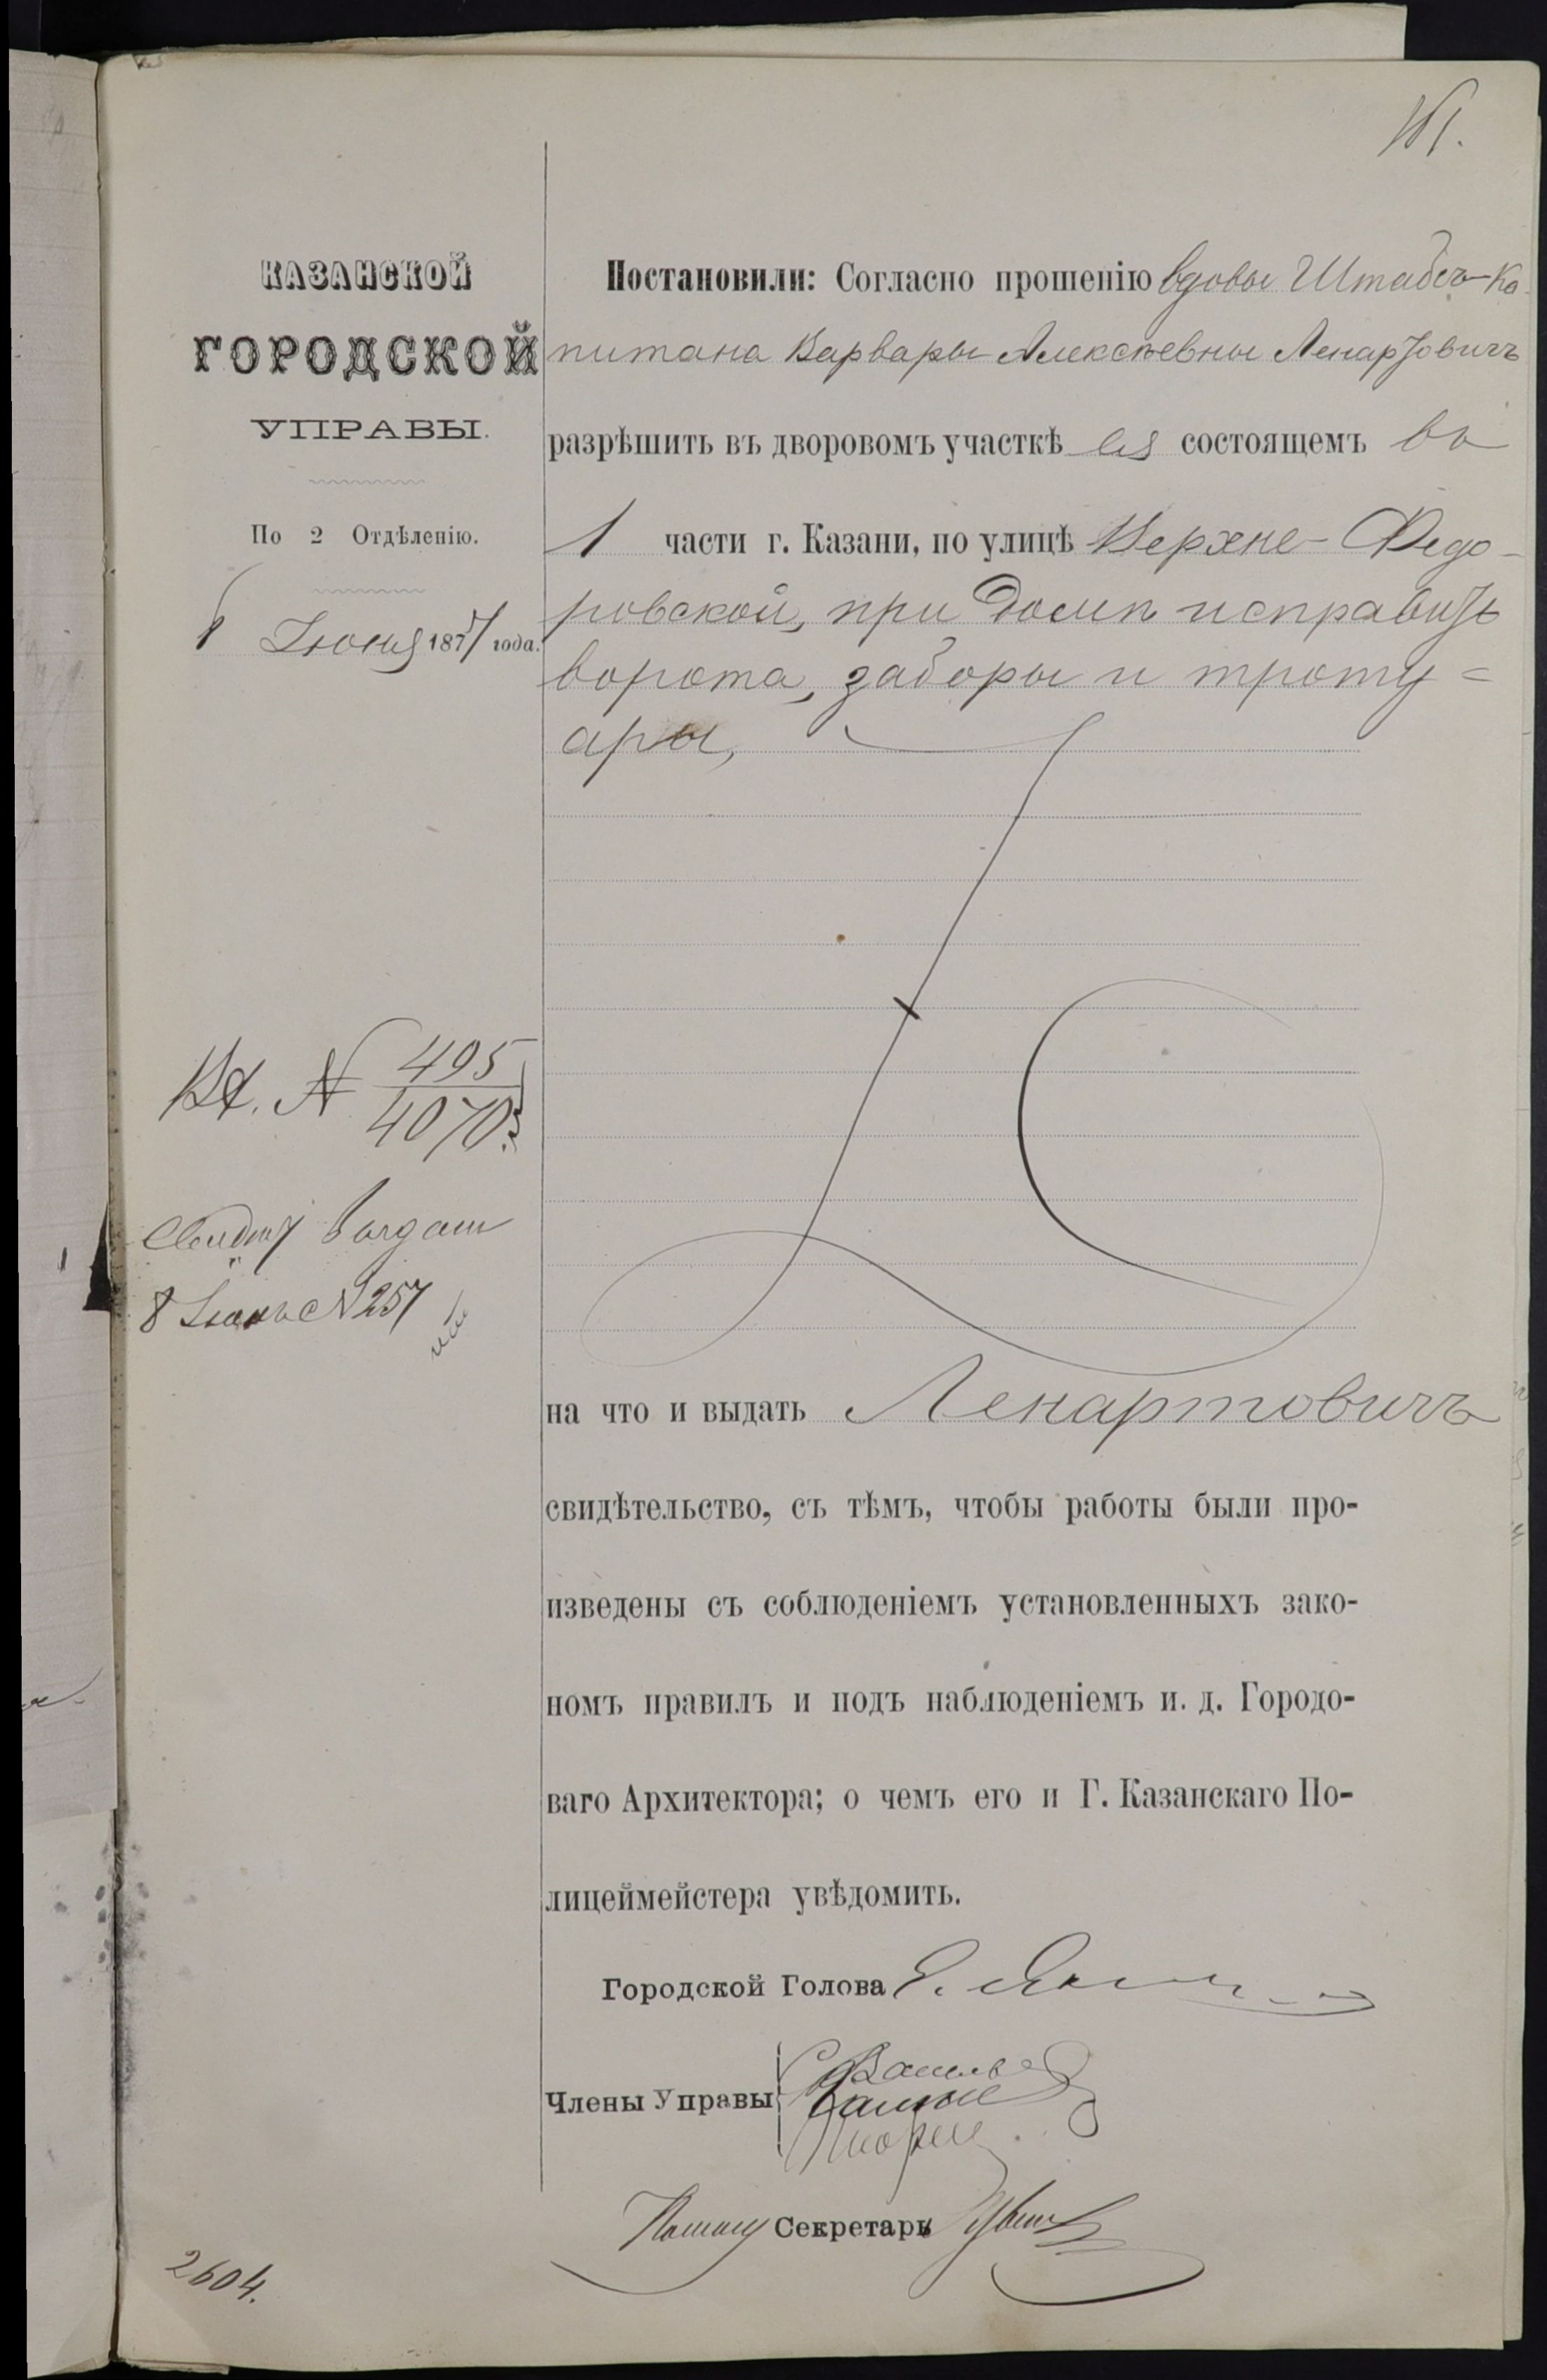 161.
КАЗАНСКОЙ
ГОРОДСКОЙ
УПРАВЫ.
По 2 Отдѣленію.
Іюня 1877 года.
Вх. №
495
4070.
8 Іюня № 257
2604.
Постановили: Согласно прошенію вдовы Штабсъ-Ка-
питана Варвары Алексѣевны Ленартовичъ
разрѣшить въ дворовомъ участкѣ ея состоящемъ въ
1 части г. Казани, по улицѣ Верхне-Ѳедо-
ровской, при домѣ исправить
ворота, заборы и троту=
ары,
на что и выдать Ленартовичъ
свидѣтельство, съ тѣмъ, чтобы работы были про-
изведены съ соблюденіемъ установленныхъ зако-
номъ правилъ и подъ наблюденіемъ и. д. Городо-
ваго Архитектора; о чемъ его и Г. Казанскаго По-
лицеймейстера увѣдомить.
Городской Голова
Члены Управы
Секретарь